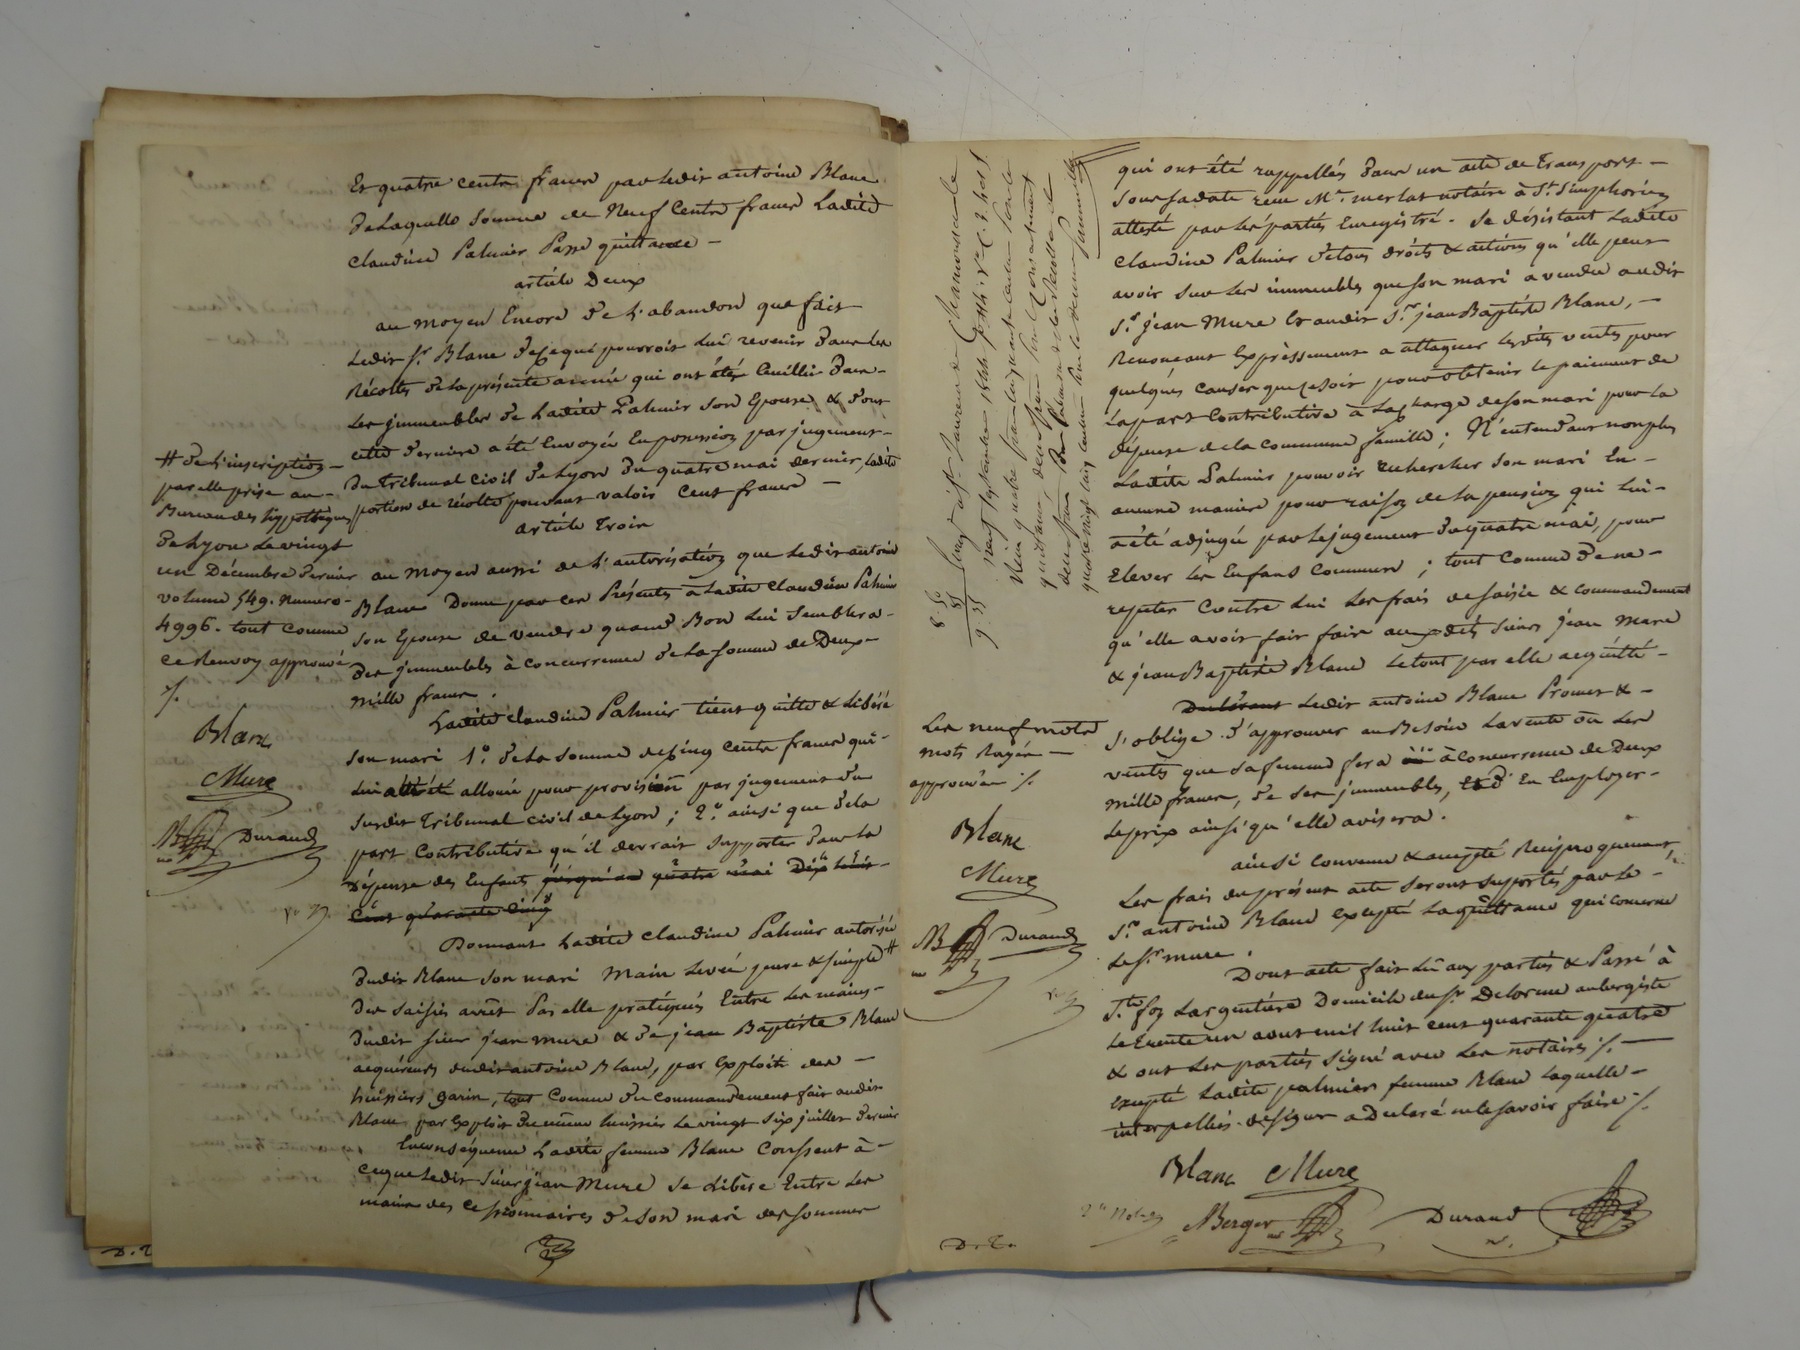 Et quatre cents francs par ledit antoine Blanc
De Laquelle Somme de Neuf Cents francs Ladite
Claudine Palmier Passe quittance —
article Deux
au moyen Encore de L'abandon que fait
Ledit Sr Blanc De ce qui pourroit Lui revenir Dans Les
Récoltes de la présente année qui ont été Cueillis Dans
Les jmmeubles de Ladite Palmier Son Epouse & Dont
cette Derniere a été Envoyée En possession par jugement
Du Tribunal Civil de Lyon Du quatre mai dernier, Ladite
portion de récolte pouvant valoir Cent francs —
article Trois
au moyen aussi de L'autorisation que Ledit antoine
Blanc Donne par ces Présentes à Ladite Claudine Palmier
Son Epouse de vendre quand Bon Lui Semblera
Des jmmeubles à Concurrence de la Somme de Deux
mille francs.
Ladite Claudine Palmier tient quitte & Libéré
Son mari 1° de la Somme de Cinq Cents francs qui
Lui a été allouée pour provision par jugement du
Susdit Tribunal Civil de Lyon; 2° ainsi que de la
part Contributive qu'il devrait Supporter Dans La
Dépense des Enfants jusqu'au quatre mai Dix huit
Cent quarante Cinq
Donnant Ladite Claudine Palmier autorisée
Dudit Blanc Son mari Main Levée pure & Simple #
Des Saisies arrêt Par elle pratiquées Entre Les mains
Dudit Sieur jean mure & De jean Baptiste Blanc
acquéreurs dudit antoine Blanc, par Exploits des —
huissiers garin, tout Comme Du Commandement fait audit
Blanc par Exploit Du même huissier Le vingt Six juillet Dernier
En Conséquence Ladite femme Blanc Consent à —
Ce que Ledit Sieur jean Mure Se Libère Entre Les
mains des Cessionnaires de Son mari des Sommes
# De L'inscription —
par elle prise au —
Bureau des hypothèques
De Lyon Le vingt
un Décembre Dernier
volume 549. Numéro
4996. tout Comme
Ce Renvoy approuvé
Blanc
Mure
Durand
qui ont été rappellés Dans un acte de Transport —
Sous Sa date reçu Me merlat notaire à St Simphorien
attesté par Les parties Enregistré. Se désistant Ladite
Claudine Palmier De tous droits & actions qu'elle peut
avoir Sur Les immeubles que Son mari a vendu audit
Sr jean Mure & audit Sr jean Baptiste Blanc, —
Renonçant Expressément a attaquer Lesdites ventes pour
quelques Causes que ce Soit pour obtenir Le paiement de
La part Contributive à La charge de Son mari pour La
dépense de La Commune famille; N'entendant non plus
Ladite Palmier pouvoir rechercher Son mari En —
aucune manière pour raison de La pension qui Lui
a été adjugée par Le jugement Du quatre mai, pour
Elever Les Enfans Communs; tout Comme De ne —
repeter Contre Lui Les frais de Saisie & Commandement
qu'elle avoit fait faire auxdits Sieurs jean Mure
& jean Baptiste Blanc Le tout par elle acquitté —
Ledit antoine Blanc Promet & —
S'oblige D'approuver au Besoin La vente ou Les
ventes que Sa femme fera à Concurrence de Deux
mille francs, De Ses jmmeubles, En Employer —
Le prix ainsi qu'elle avisera.
ainsi Convenu & accepté Reciproquement,
Les frais du présent acte Seront Suportés par Le —
Sr antoine Blanc Excepté La quittance qui Concerne
Le Sr mure.
Dont acte fait Lu aux parties & Passé à
Ste foy Largentière Domicile du Sr Delorme aubergiste
Le Trente un aout mil huit cent quarante quatre
& ont Les parties Signé avec Les notaires —
Excepté Ladite palmier femme Blanc Laquelle —
interpellée de Signer a Déclaré ne Le Savoir faire
Blanc Mure
Berger Durand
Les neuf mots
mots Rayés —
approuvés
Blanc
Mure
Durand